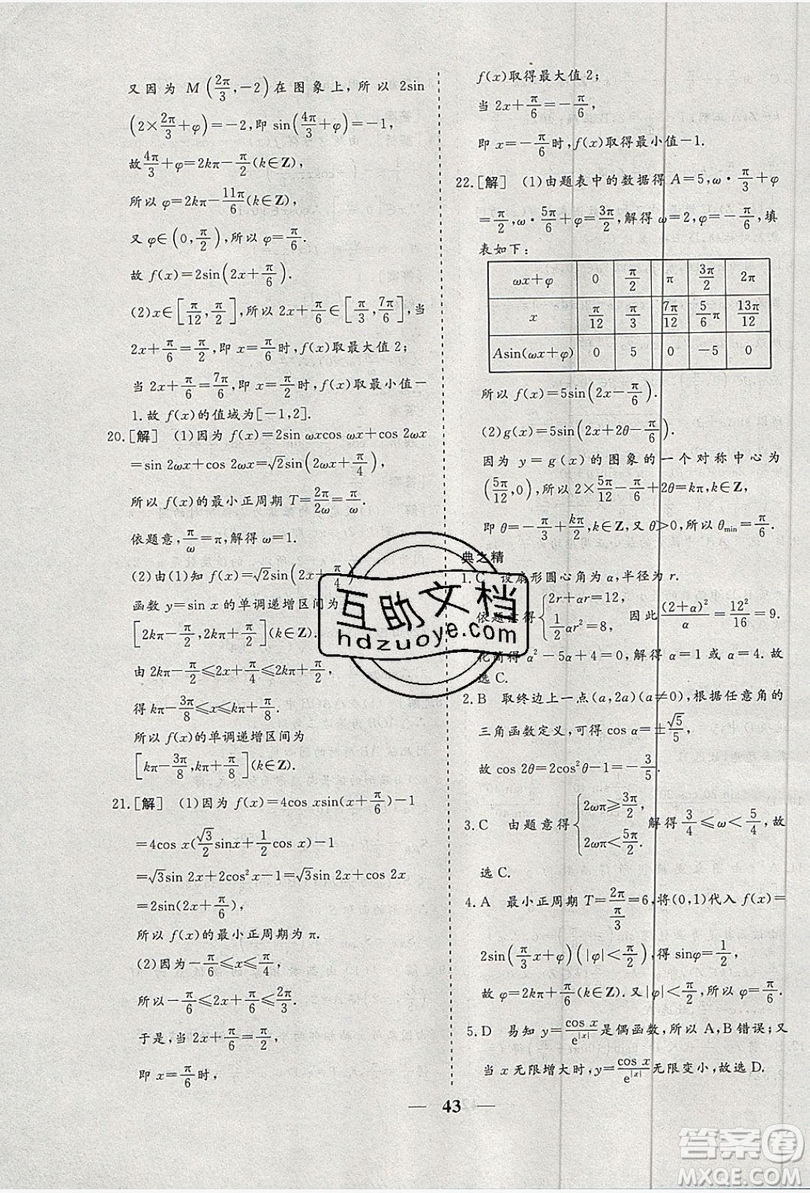 又因为 M(2π/3,-2)在图象上,所以 2sin
(2×2π/3+φ)=-2,即 sin(4π/3+φ)=-1,
故4π/3+φ=2kπ-π/2(k∈Z)
所以 φ=2kπ-11π/6(k∈Z)
又 φ∈(0,π/2),所以 φ=π/6.
故 f(x)=2sin(2x+π/6).
(2)x∈[π/12,π/2],所以 2x+π/6∈[π/3,7π/6],当
2x+π/6=π/2时,f(x)取得最大值 2;
当 2x+π/6=7π/6时,f(x)取得最小值-
1.故 f(x)的值域为[-1,2].
20.[解] (1)因为 f(x)=2sin ωxcos ωx+cos 2ωx
=sin 2ωx+cos 2ωx=√2sin(2ωx+π/4),
所以 f(x)的最小正周期 T=2π/2ω=π/ω.
依题意,π/ω=π,解得 ω=1.
(2)由(1)知 f(x)=√2sin(2x+π/4)
函数 y=sin x 的单调递增区间为
[2kπ-π/2,2kπ+π/2](k∈Z).
由 2kπ-π/2≤2x+π/4≤2kπ+π/2,
得 kπ-3π/8≤x≤kπ+π/8.
所以 f(x)的单调递增区间为
[kπ-3π/8,kπ+π/8](k∈Z).
21.[解] (1)因为 f(x)=4cos xsin(x+π/6)-1
=4cos x(√3/2sin x+1/2cos x)-1
=√3sin 2x+2cos²x-1=√3sin 2x+cos 2x
=2sin(2x+π/6),
所以 f(x)的最小正周期为 π.
(2)因为-π/6≤x≤π/4,
所以-π/6≤2x+π/6≤2π/3.
于是,当 2x+π/6=π/2,
即 x=π/6时,
f(x)取得最大值 2;
当 2x+π/6=-π/6,
即 x=-π/6时,f(x)取得最小值-1.
22.[解] (1)由题表中的数据得 A=5,ω·π/3+φ
=π/2,ω·5π/6+φ=3π/2,解得 ω=2,φ=-π/6,填
表如下:
ωx+φ 0 π/2 π 3π/2 2π
x π/12 π/3 7π/12 5/6π 13π/12
Asin(ωx+φ) 0 5 0 -5 0
所以 f(x)=5sin(2x-π/6).
(2)g(x)=5sin(2x+2θ-π/6).
因为 y=g(x)的图象的一个对称中心为
(5π/12,0),所以 2×5π/12+2θ-π/6=kπ,k∈Z,
即 θ=-π/3+kπ/2,k∈Z,又 θ>0,所以 θmin=π/6.
典之精
1.C 设扇形圆心角为 α,半径为 r.
依题意得{2r+αr=12, 1/2αr²=8, 因此(2+α)²/α=12²/16=9.
化简得 α²-5α+4=0,解得 α=1或α=4.故
选 C.
2.B 取终边上一点(a,2a)(a≠0),根据任意角的
三角函数定义,可得 cos α=±√5/5,
故 cos2θ=2cos²θ-1=-3/5.
3.C 由题意得{2ωπ≥3π/2, 2ωπ<5π/2, 解得3/4≤ω<5/4,故
选 C.
4.A 最小正周期 T=2π/(π/3)=6,将(0,1)代入 f(x)=
2sin(π/3x+φ)(|φ|<π/2),得 sinφ=1/2.
故 φ=π/6+2kπ(k∈Z).又|φ|<π/2,故 φ=π/6.
5.D 易知 y=cos x/e^|x|是偶函数,所以 A,B 错误;又
当 x 无限增大时,y=cos x/e^|x|无限变小,故选 D.
43
互助文档
hdzuoye.com
答案圈
MXQE.COM